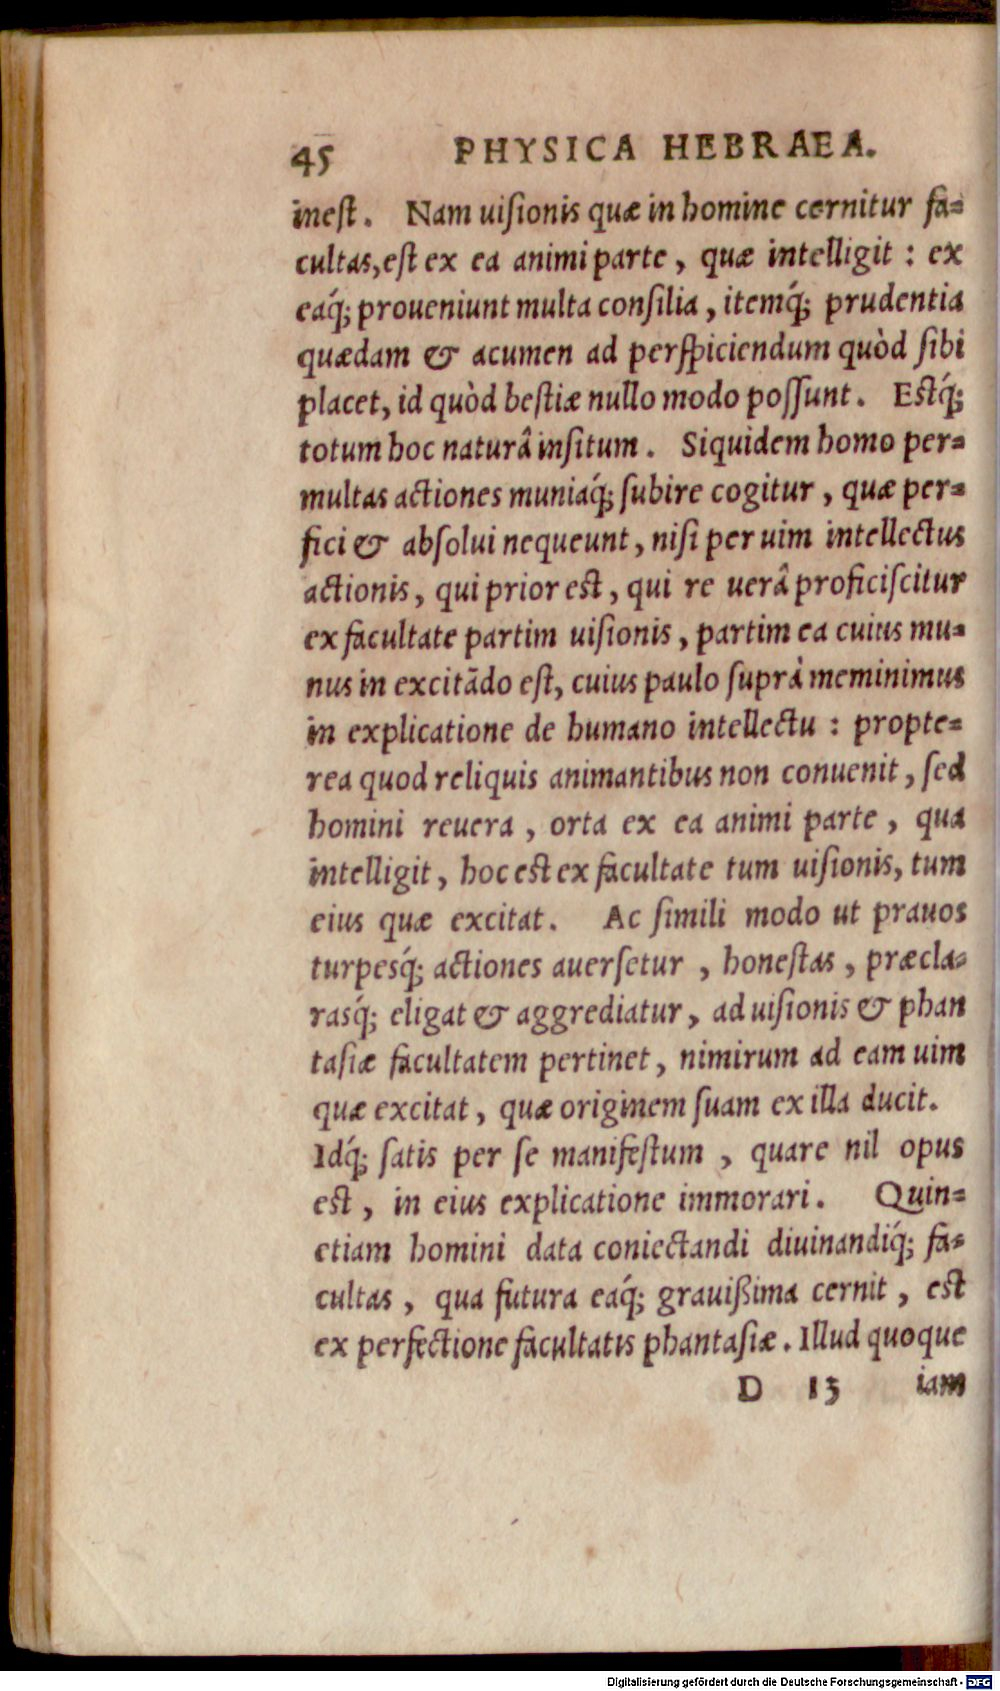 45 PHYSICA HEBRAEA.
inest. Nam uisionis quæ in homine cernitur fa=
cultas, est ex ea animi parte, quæ intelligit : ex
eaq́; proueniunt multa consilia, itemq́; prudentia
quædam & acumen ad perspiciendum quòd sibi
placet, id quòd bestiæ nullo modo possunt. Estq́;
totum hoc naturâ insitum. Siquidem homo per=
multas actiones muniaq́; subire cogitur, quæ per=
fici & absolui nequeunt, nisi per uim intellectus
actionis, qui prior est, qui re uerâ proficiscitur
ex facultate partim uisionis, partim ea cuius mu=
nus in excitādo est, cuius paulo suprà meminimus
in explicatione de humano intellectu : propte=
rea quod reliquis animantibus non conuenit, sed
homini reuera, orta ex ea animi parte, qua
intelligit, hoc est ex facultate tum uisionis, tum
eius quæ excitat. Ac simili modo ut prauos
turpesq́; actiones auersetur, honestas, præcla=
rasq́; eligat & aggrediatur, ad uisionis & phan
tasiæ facultatem pertinet, nimirum ad eam uim
quæ excitat, quæ originem suam ex illa ducit.
Idq́; satis per se manifestum, quare nil opus
est, in eius explicatione immorari. Quin=
etiam homini data coniectandi diuinandiq́; fa=
cultas, qua futura eaq́; grauißima cernit, est
ex perfectione facultatis phantasiæ. Illud quoque
D 13 iam
Digitalisierung gefördert durch die Deutsche Forschungsgemeinschaft - DFG